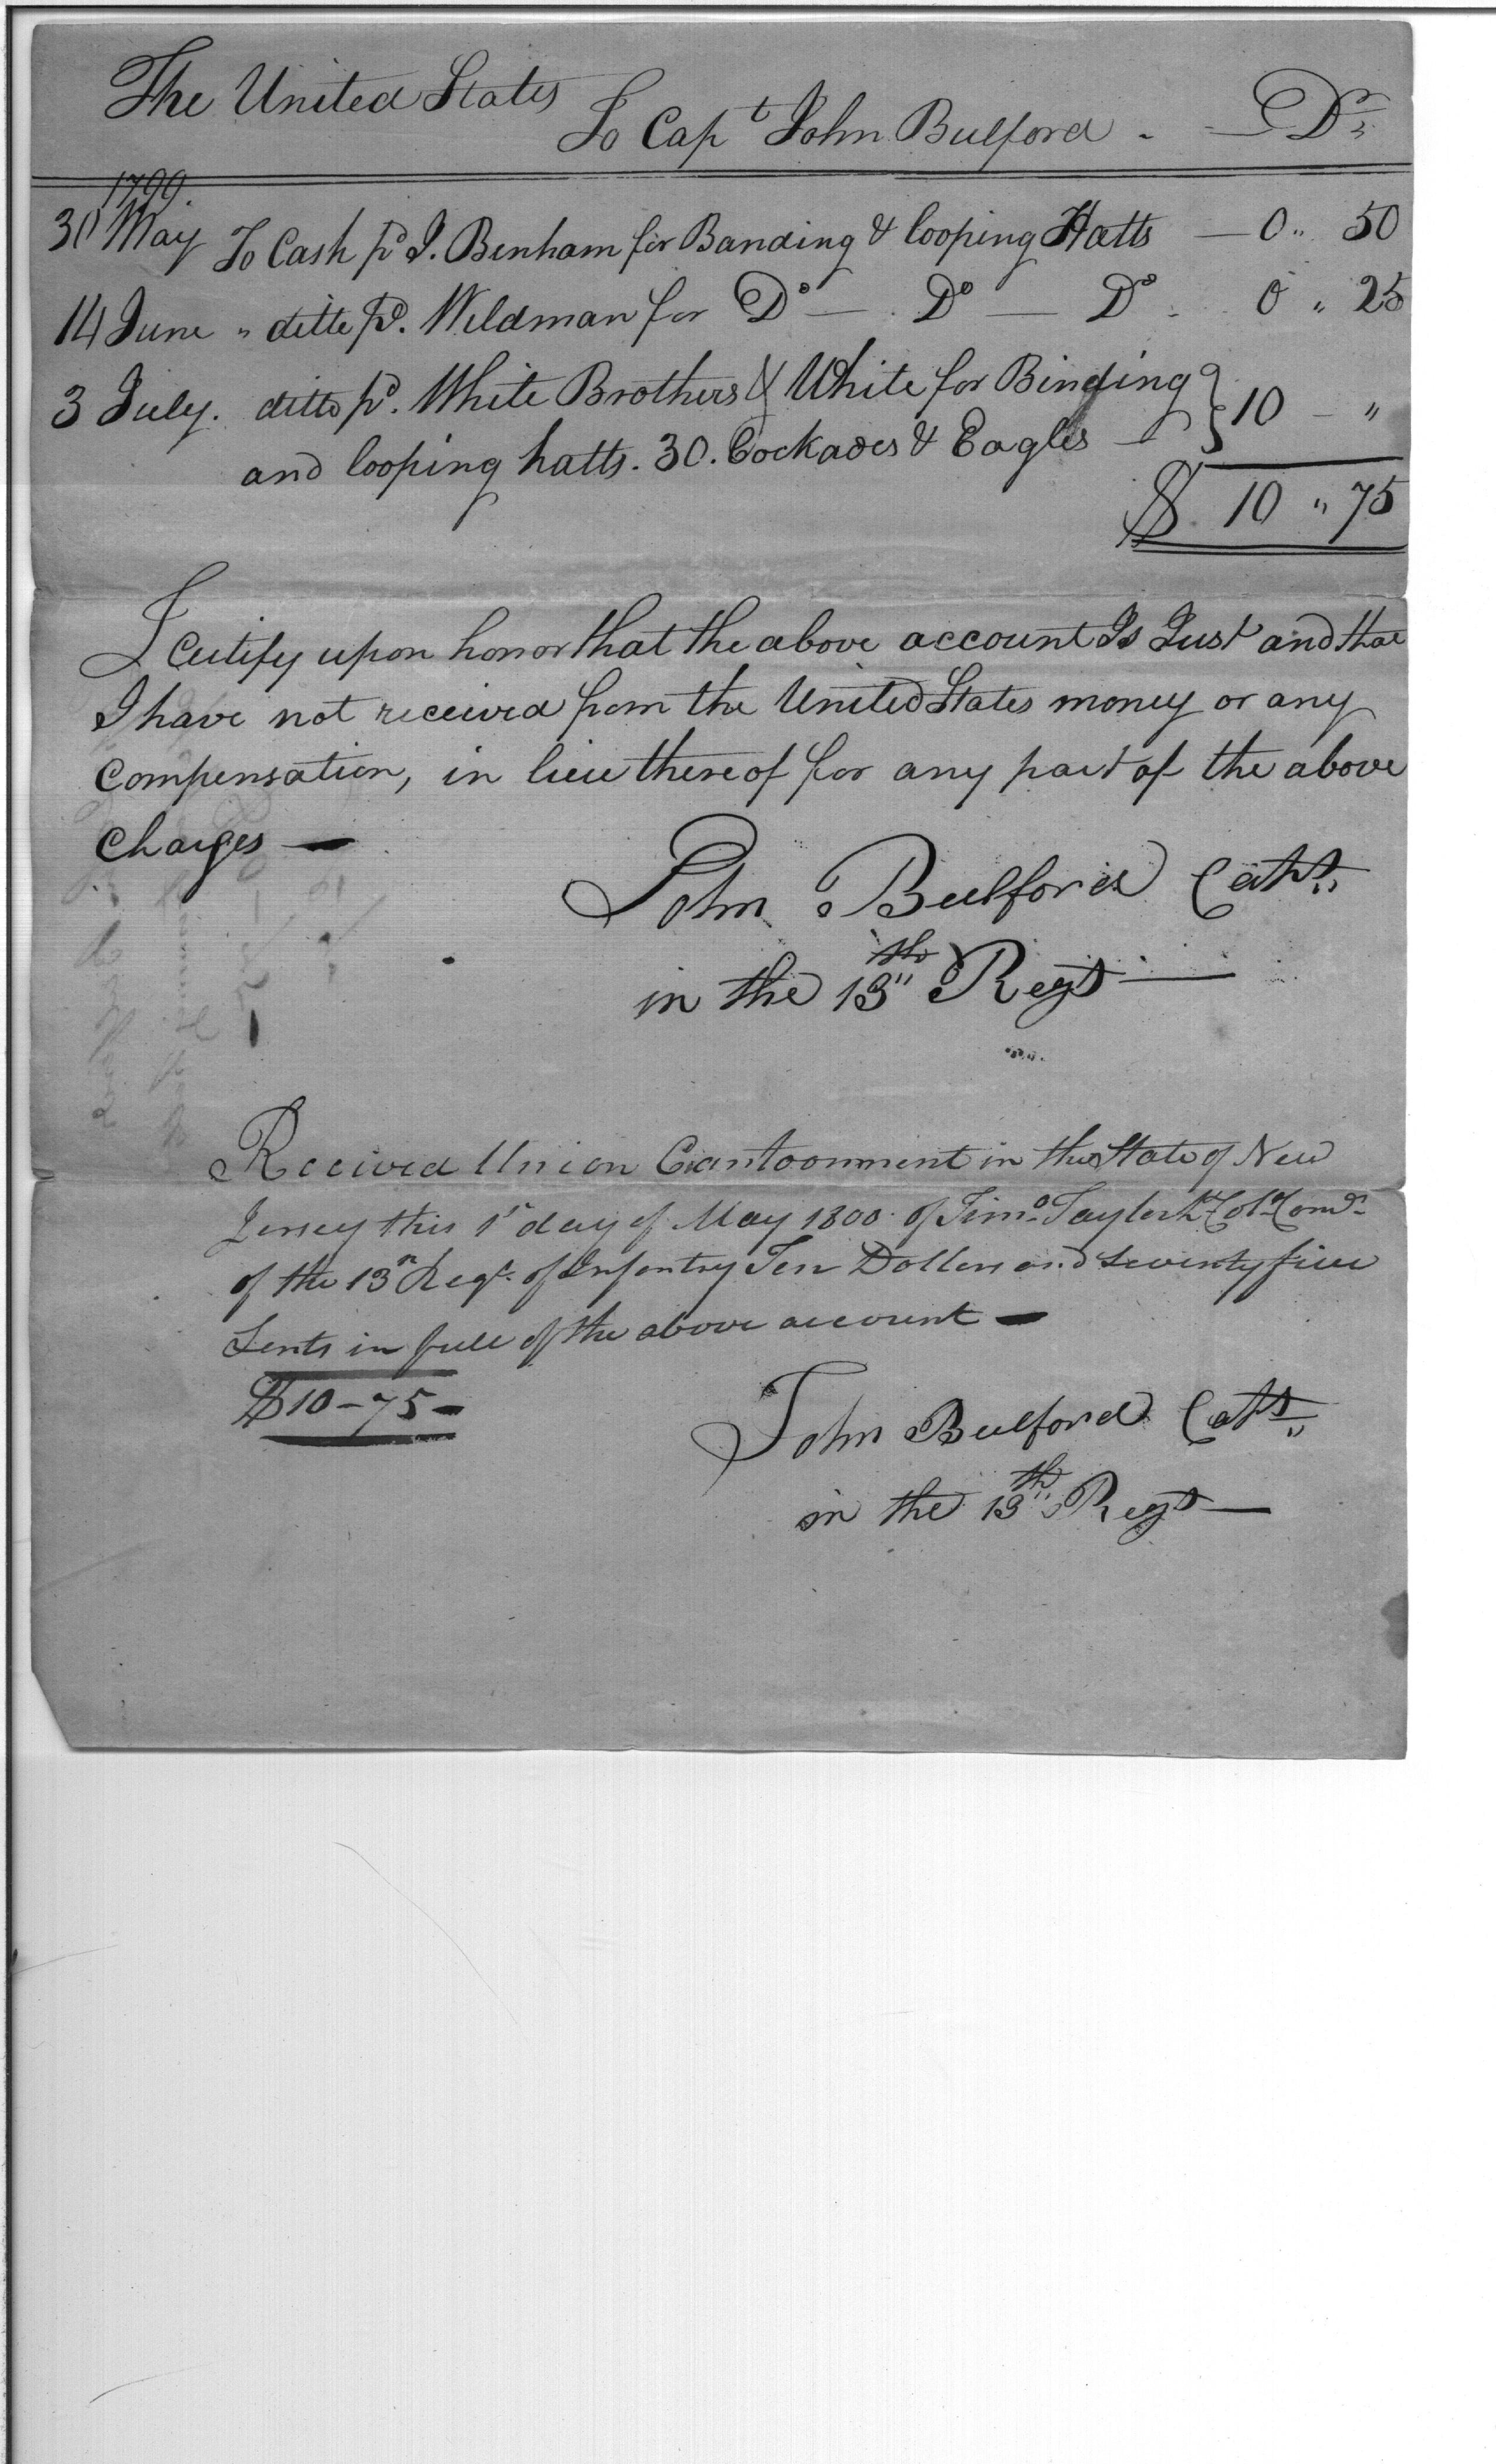 The United States
To Capt John Bulford . — Dr
1799.
30 May To Cash pd J. Benham for Banding & looping Hatts — 0 " 50
14 June " ditto pd. Wildman for Do — Do — Do . 0 " 25
3 July. ditto pd. White Brothers & White for Binding } 10 - "
and looping hatts. 30. Cockades & Eagles —
$ 10 " 75
I Certify upon honor that the above account Is Just and that
I have not received from the United States money or any
Compensation, in lieu thereof for any part of the above
Charges —
John Bulford Capt
in the 13th Regt —
Received Union Cantoonment in the State of New
Jersey this 1st day of May 1800 of Timo Taylor Lt Col Comdt
of the 13th Regt. of Infantry Ten Dollars and seventy five
Sents in full of the above account —
$10-75-
John Bulford Capt
in the 13th Regt —